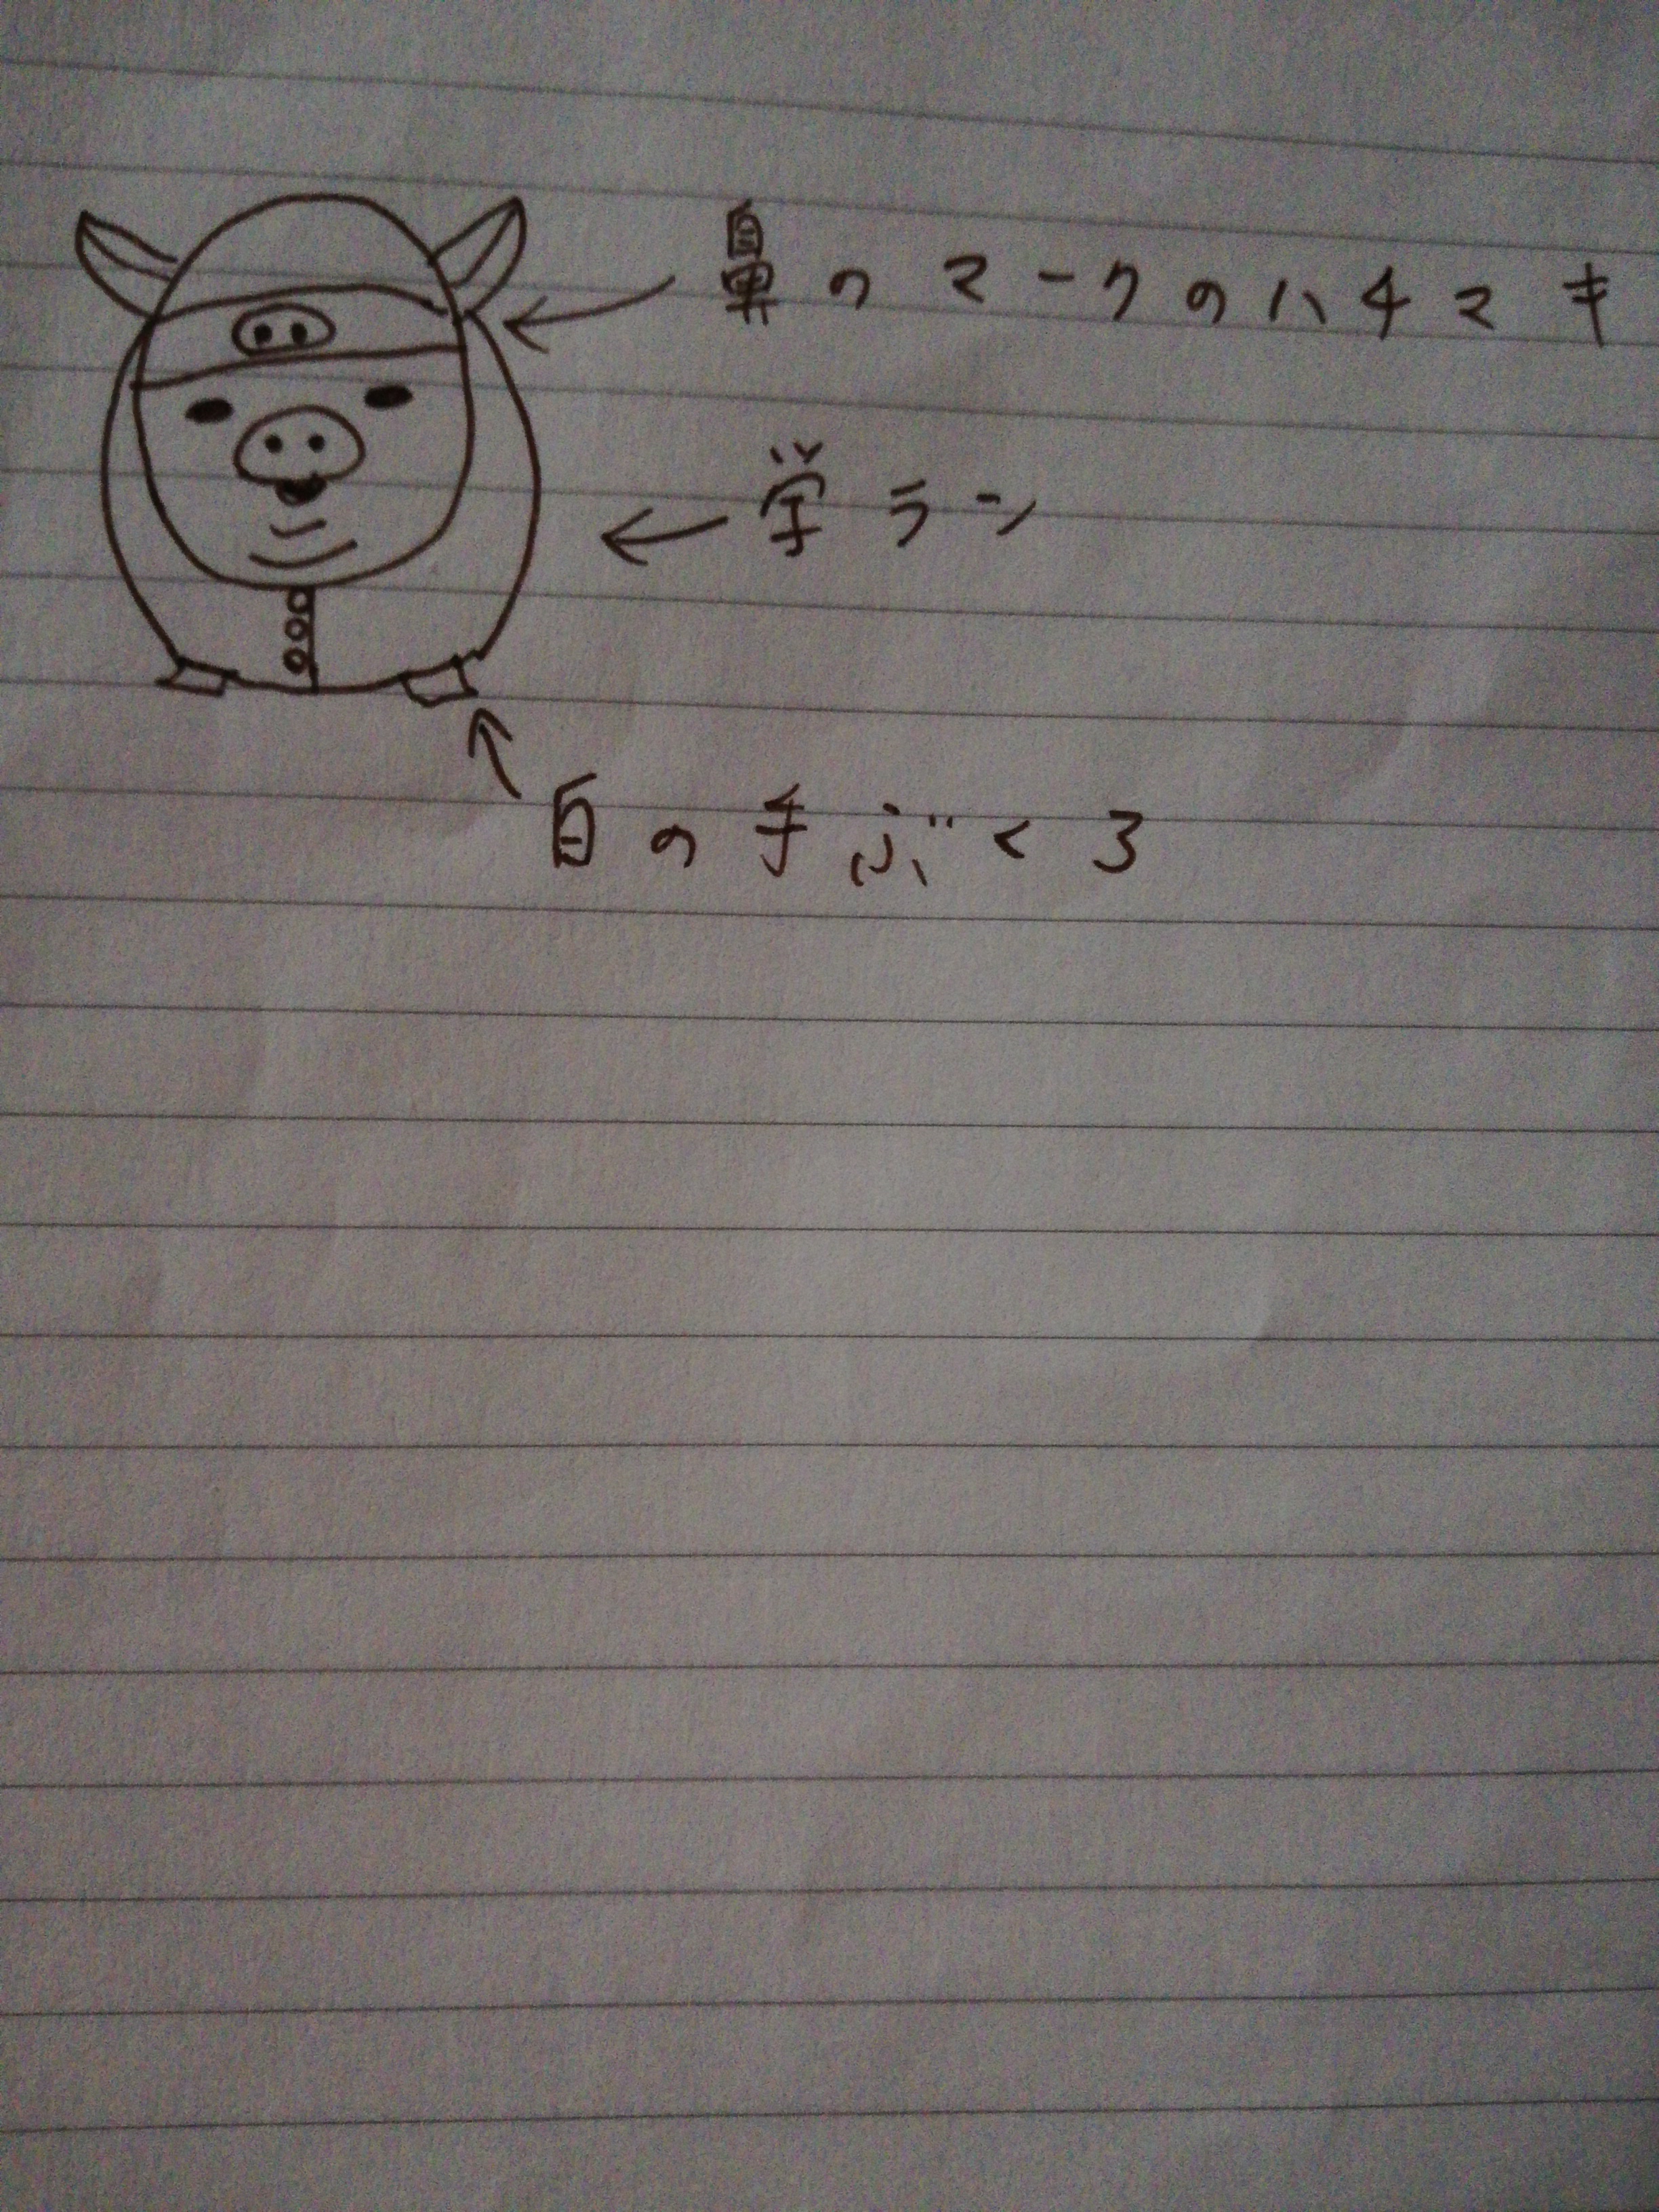 鼻のマークのハチマキ
学ラン
白の手ぶくろ